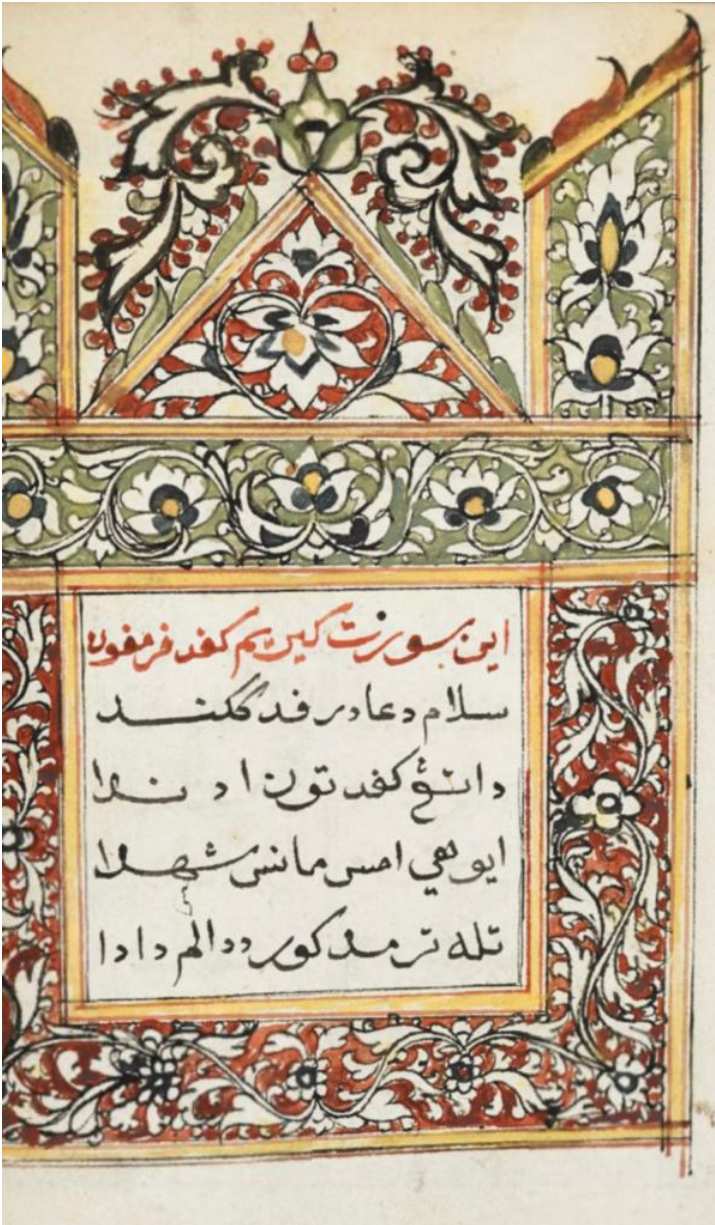 اين سورت كيريم كفد فرمفون
سلام دعا درفد ككند
داتڠ كفد تون ادندا
ايوهي امس مانس شهدا
تله ترمدكور ددالم دادا